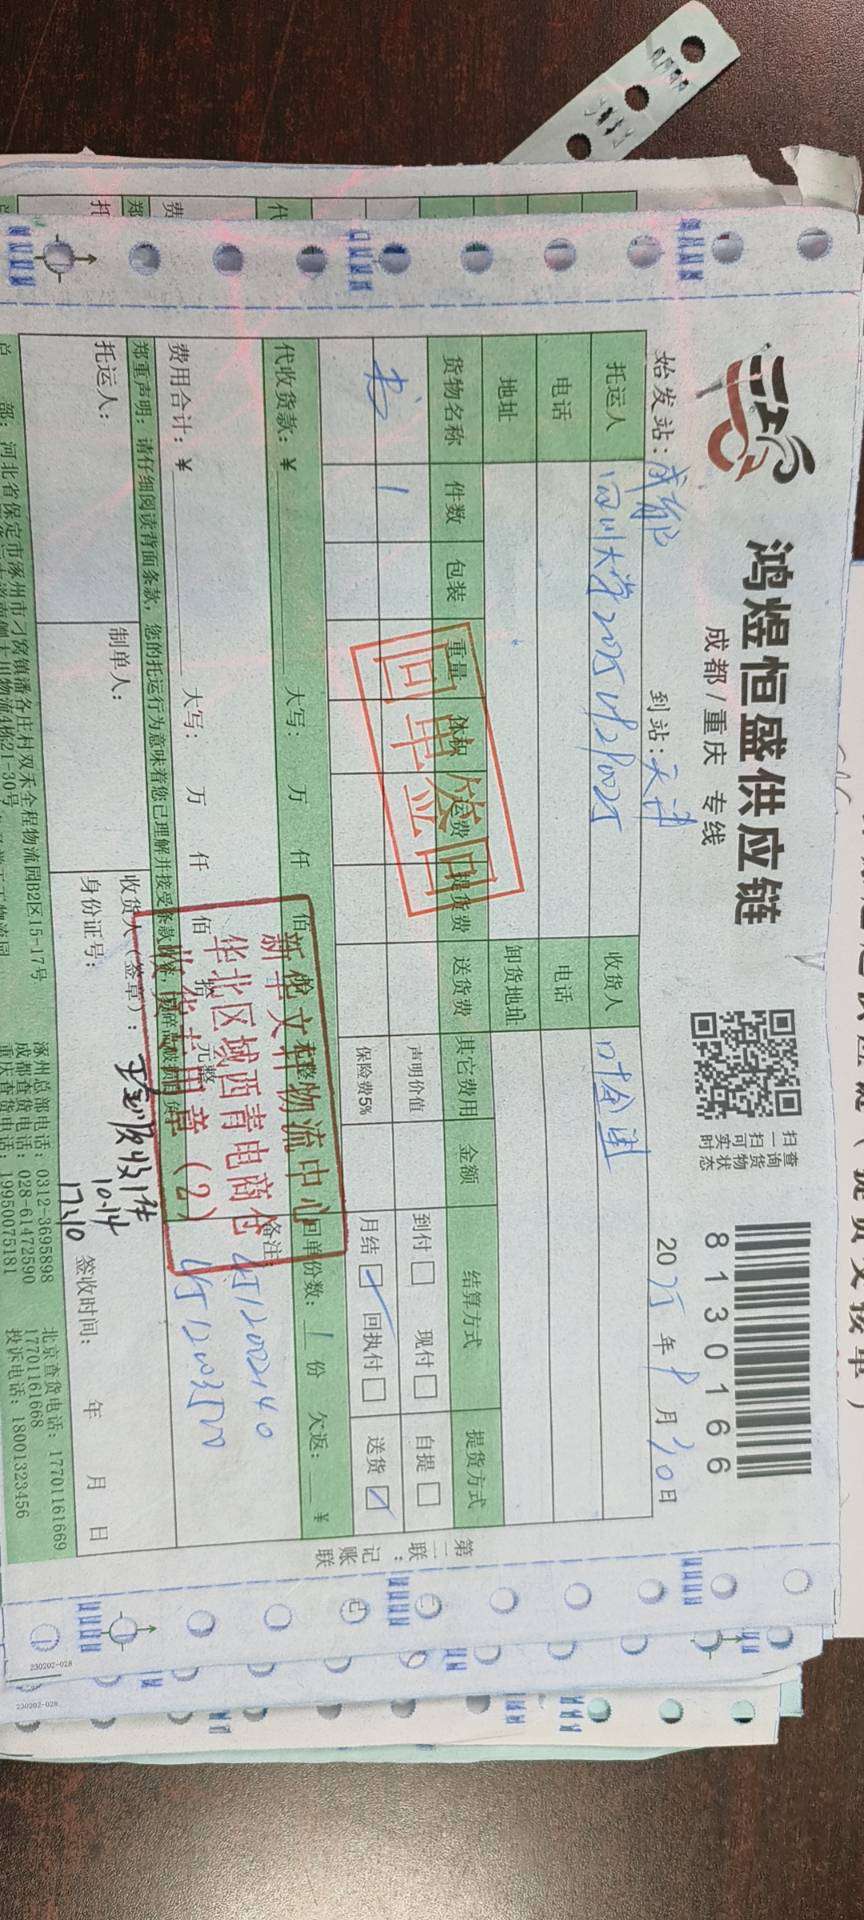 鸿煜恒盛供应链
成都/重庆 专线
扫一扫可实时
查询货物状态
8130166
始发站：成都
到站：天津
2025年9月30日
托运人
四川大学
收货人
叶金国
电话
电话
地址
卸货地址
货物名称 件数 包装 重量 体积 运费 提货费 送货费 其它费用 金额 结算方式 提货方式
书 1
声明价值
到付 现付 自提
保险费5%
月结 回执付 送货
回单签回
代收货款：￥ 大写： 万 仟 佰
回单份数：1份 欠返： ￥
费用合计：￥ 大写： 万 仟 佰 拾 元整
备注：
郑重声明：请仔细阅读背面条款，您的托运行为意味着您已理解并接受条款
新华文轩物流中心
华北区域西青电商仓
收货专用章（2）
托运人：
制单人：
收货人（签章）：
收1件
10.14
17:10
身份证号：
签收时间： 年 月 日
河北省保定市涿州市刁窝镇潘各庄村双禾全程物流园B2区15-17号
涿州总部电话：0312-3695898
成都查货电话：028-61472590
重庆查货电话：19950075181
北京查货电话：17701161669
17701161668
投诉电话：18001323456
第二联：记账联
230202-028
230202-028